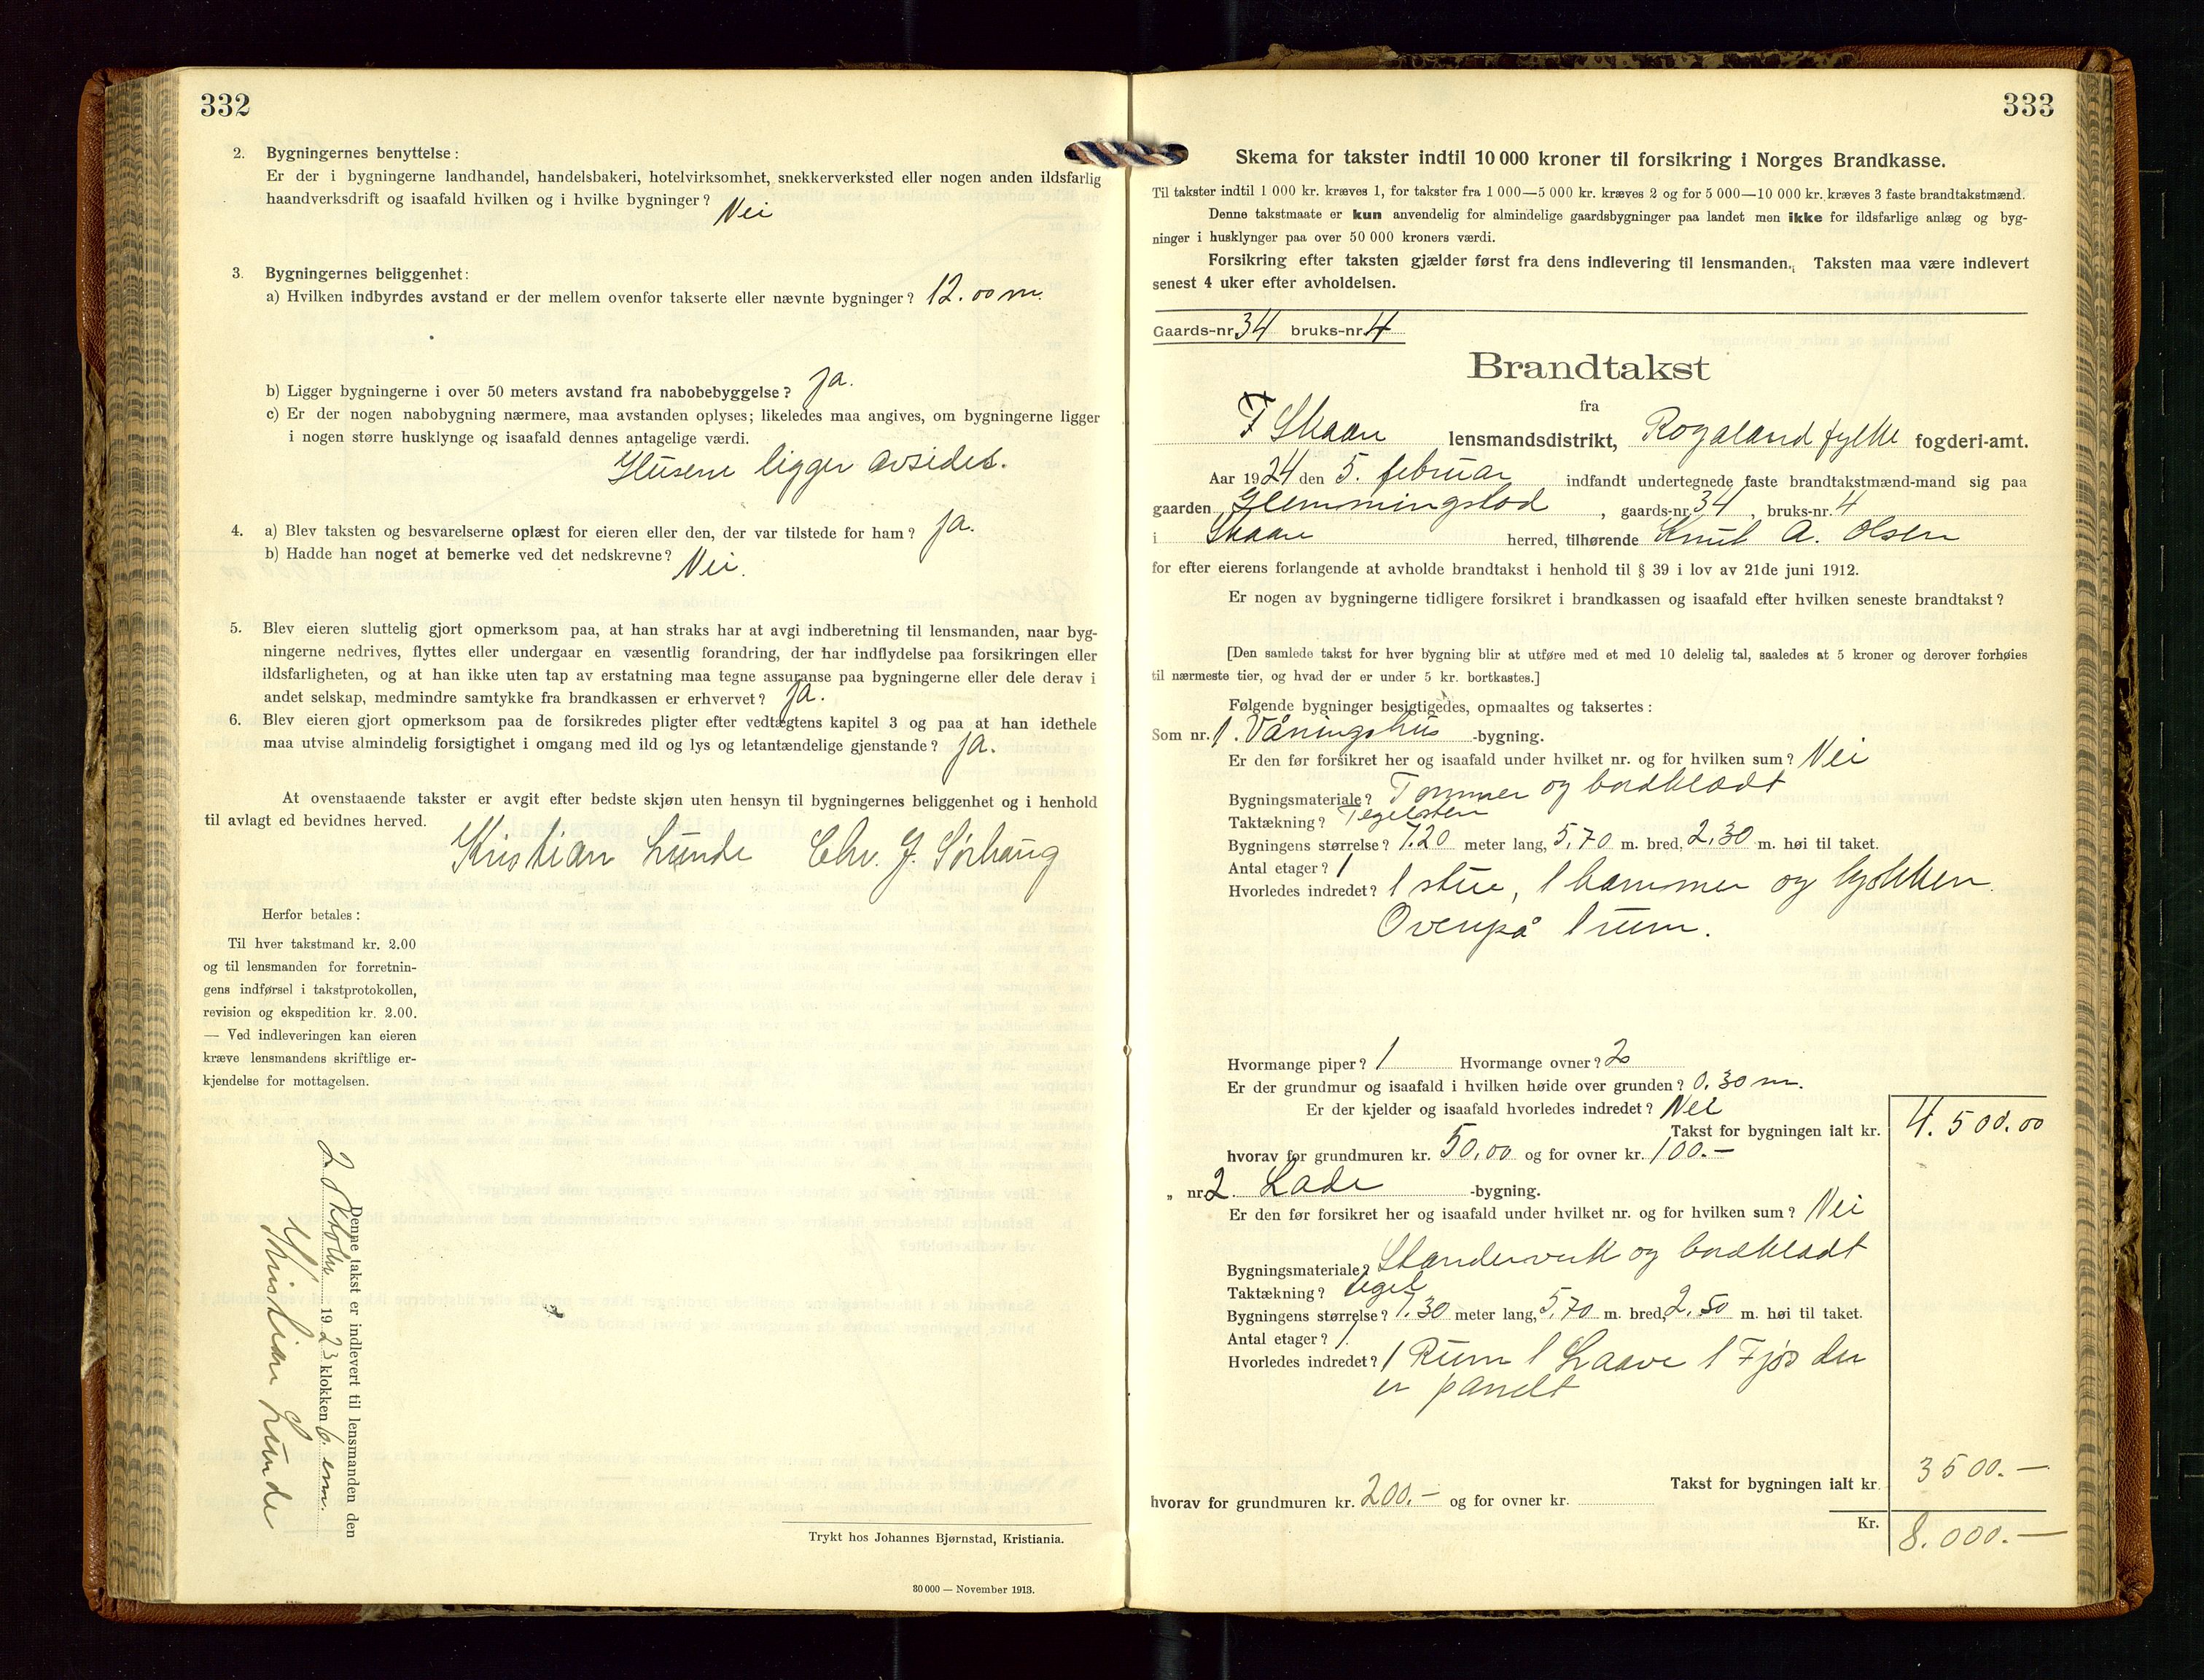 332
2. Bygningernes benyttelse:
Er der i bygningerne landhandel, handelsbakeri, hotelvirksomhet, snekkerverksted eller nogen anden ildsfarlig
haandverksdrift og isaafald hvilken og i hvilke bygninger? Nei
3. Bygningernes beliggenhet:
a) Hvilken indbyrdes avstand er der mellem ovenfor takserte eller nævnte bygninger? 12.00 m.
b) Ligger bygningerne i over 50 meters avstand fra nabobebyggelse? Ja.
c) Er der nogen nabobygning nærmere, maa avstanden oplyses; likeledes maa angives, om bygningerne ligger
i nogen større husklynge og isaafald dennes antagelige værdi.
Husene ligger avsides.
4. a) Blev taksten og besvarelserne oplæst for eieren eller den, der var tilstede for ham? Ja.
b) Hadde han noget at bemerke ved det nedskrevne? Nei.
5. Blev eieren sluttelig gjort opmerksom paa, at han straks har at avgi indberetning til lensmanden, naar byg-
ningerne nedrives, flyttes eller undergaar en væsentlig forandring, der har indflydelse paa forsikringen eller
ildsfarligheten, og at han ikke uten tap av erstatning maa tegne assuranse paa bygningerne eller dele derav i
andet selskap, medmindre samtykke fra brandkassen er erhvervet? Ja.
6. Blev eieren gjort opmerksom paa de forsikredes pligter efter vedtægtens kapitel 3 og paa at han idethele
maa utvise almindelig forsigtighet i omgang med ild og lys og letantændelige gjenstande? Ja.
At ovenstaaende takster er avgit efter bedste skjøn uten hensyn til bygningernes beliggenhet og i henhold
til avlagt ed bevidnes herved.
Kristian Lunde Chr. J. Sørhaug
Herfor betales:
Til hver takstmand kr. 2.00
og til lensmanden for forretnin-
gens indførsel i takstprotokollen,
revision og ekspedition kr. 2.00.
— Ved indleveringen kan eieren
kræve lensmandens skriftlige er-
kjendelse for mottagelsen.
Denne takst er indlevert til lensmanden den
2 Oktober 1923 klokken 6 em.
Kristian Lunde
Trykt hos Johannes Bjørnstad, Kristiania.
30 000 — November 1913.
333
Skema for takster indtil 10 000 kroner til forsikring i Norges Brandkasse.
Til takster indtil 1 000 kr. kræves 1, for takster fra 1 000—5 000 kr. kræves 2 og for 5 000—10 000 kr. kræves 3 faste brandtakstmænd.
Denne takstmaate er kun anvendelig for almindelige gaardsbygninger paa landet men ikke for ildsfarlige anlæg og byg-
ninger i husklynger paa over 50 000 kroners værdi.
Forsikring efter taksten gjælder først fra dens indlevering til lensmanden. Taksten maa være indlevert
senest 4 uker efter avholdelsen.
Gaards-nr. 34 bruks-nr. 4
Brandtakst
fra
Skaare lensmandsdistrikt, Rogaland fylke fogderi-amt.
Aar 1924 den 5. februar indfandt undertegnede faste brandtakstmænd-mand sig paa
gaarden Glemmingstad, gaards-nr. 34, bruks-nr. 4
i Skaare herred, tilhørende Knut A. Olsen
for efter eierens forlangende at avholde brandtakst i henhold til § 39 i lov av 21de juni 1912.
Er nogen av bygningerne tidligere forsikret i brandkassen og isaafald efter hvilken seneste brandtakst?
[Den samlede takst for hver bygning blir at utføre med et med 10 delelig tal, saaledes at 5 kroner og derover forhøies
til nærmeste tier, og hvad der er under 5 kr. bortkastes.]
Følgende bygninger besigtigedes, opmaaltes og taksertes:
Som nr. 1. Våningshus -bygning.
Er den før forsikret her og isaafald under hvilket nr. og for hvilken sum? Nei
Bygningsmateriale? Tømmer og bordklædt
Taktækning? Tegelsten
Bygningens størrelse? 7.20 meter lang, 5,70 m. bred, 2.30 m. høi til taket.
Antal etager? 1
Hvorledes indredet? 1 stue, 1 kammer og kjøkken.
Ovenpå 1 rum.
Hvormange piper? 1 Hvormange ovner? 2
Er der grundmur og isaafald i hvilken høide over grunden? 0.30 m.
Er der kjelder og isaafald hvorledes indredet? Nei
Takst for bygningen ialt kr. 4.500.00
hvorav for grundmuren kr. 50.00 og for ovner kr. 100.—
„ nr. 2. Lade -bygning.
Er den før forsikret her og isaafald under hvilket nr. og for hvilken sum? Nei
Bygningsmateriale? Standerverk og bordklædt
Taktækning? tegel
Bygningens størrelse? 7.30 meter lang, 5,70 m. bred, 2.50 m. høi til taket.
Antal etager? 1.
Hvorledes indredet? 1 Rum 1 Laave 1 Fjøs der
er panelt
Takst for bygningen ialt kr. 3500.—
hvorav for grundmuren kr. 200.— og for ovner kr.
Kr. 8.000.—